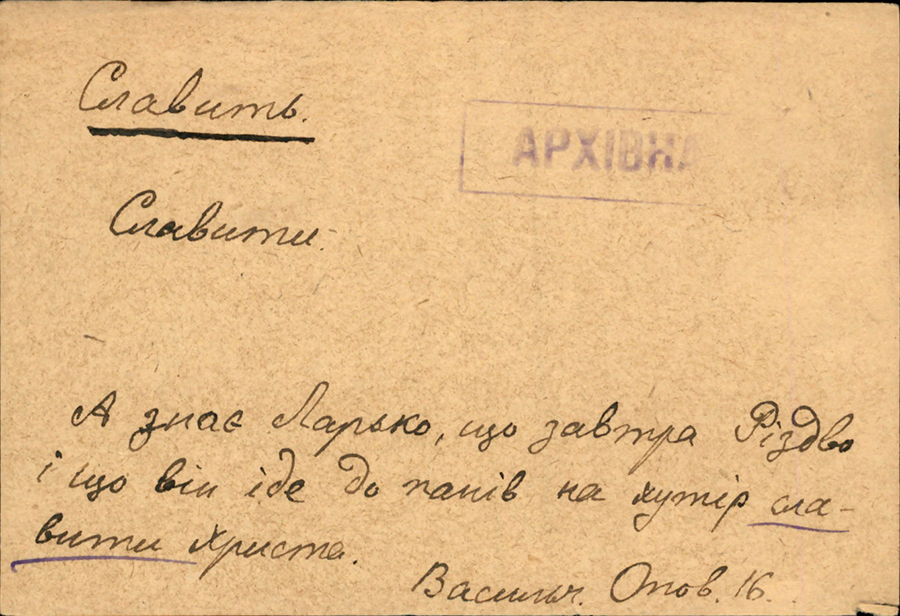 Славить.
АРХІВНА
Славити.
А знає Ларько, що завтра Різдво
і що він іде до панів на хутір сла-
вити Христа.
Васильч. Опов. 16.